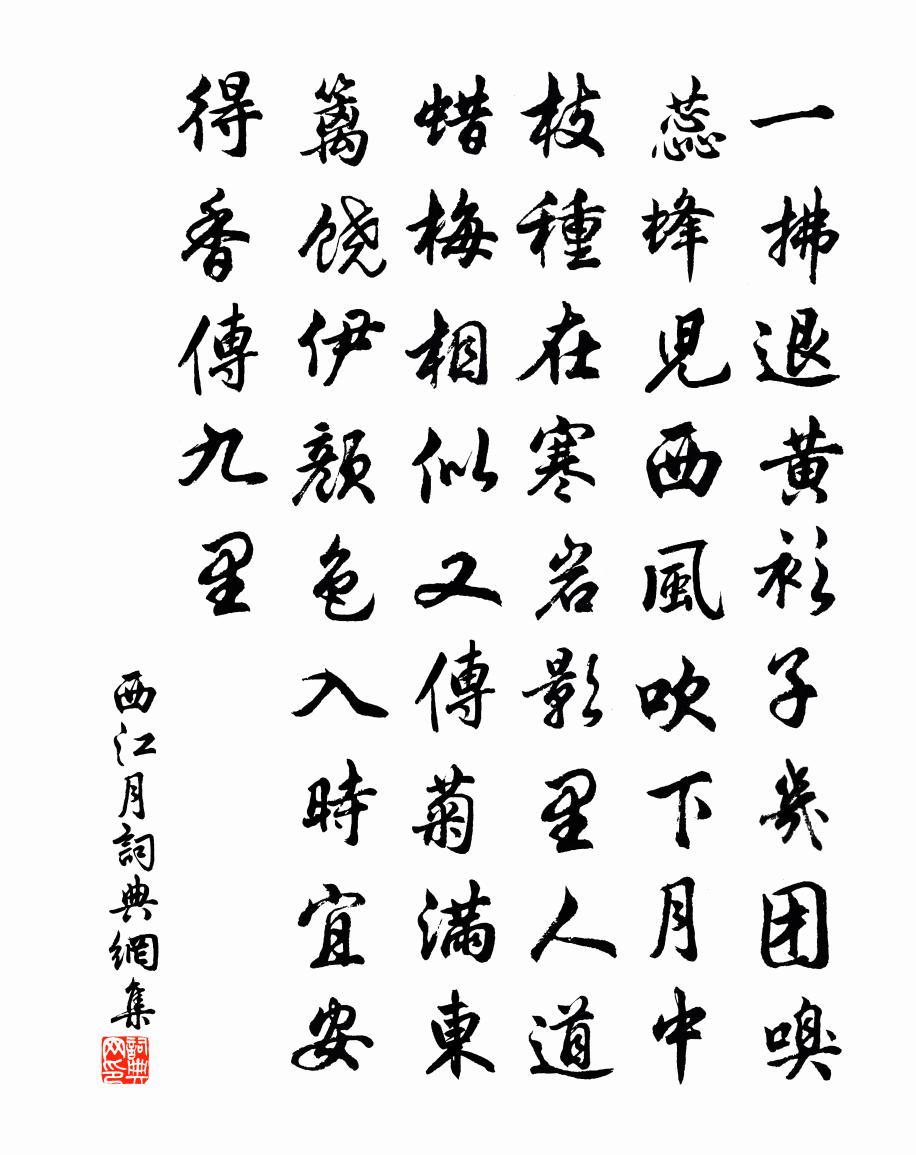 一拂退黄衫子幾团嗅
蕊蜂児西風吹下月中
枝種在寒岩影里人道
蜡梅相似又傳菊滿東
籬饶伊顏色入時宜安
得香傳九里
西江月詞典網集
詞典网印